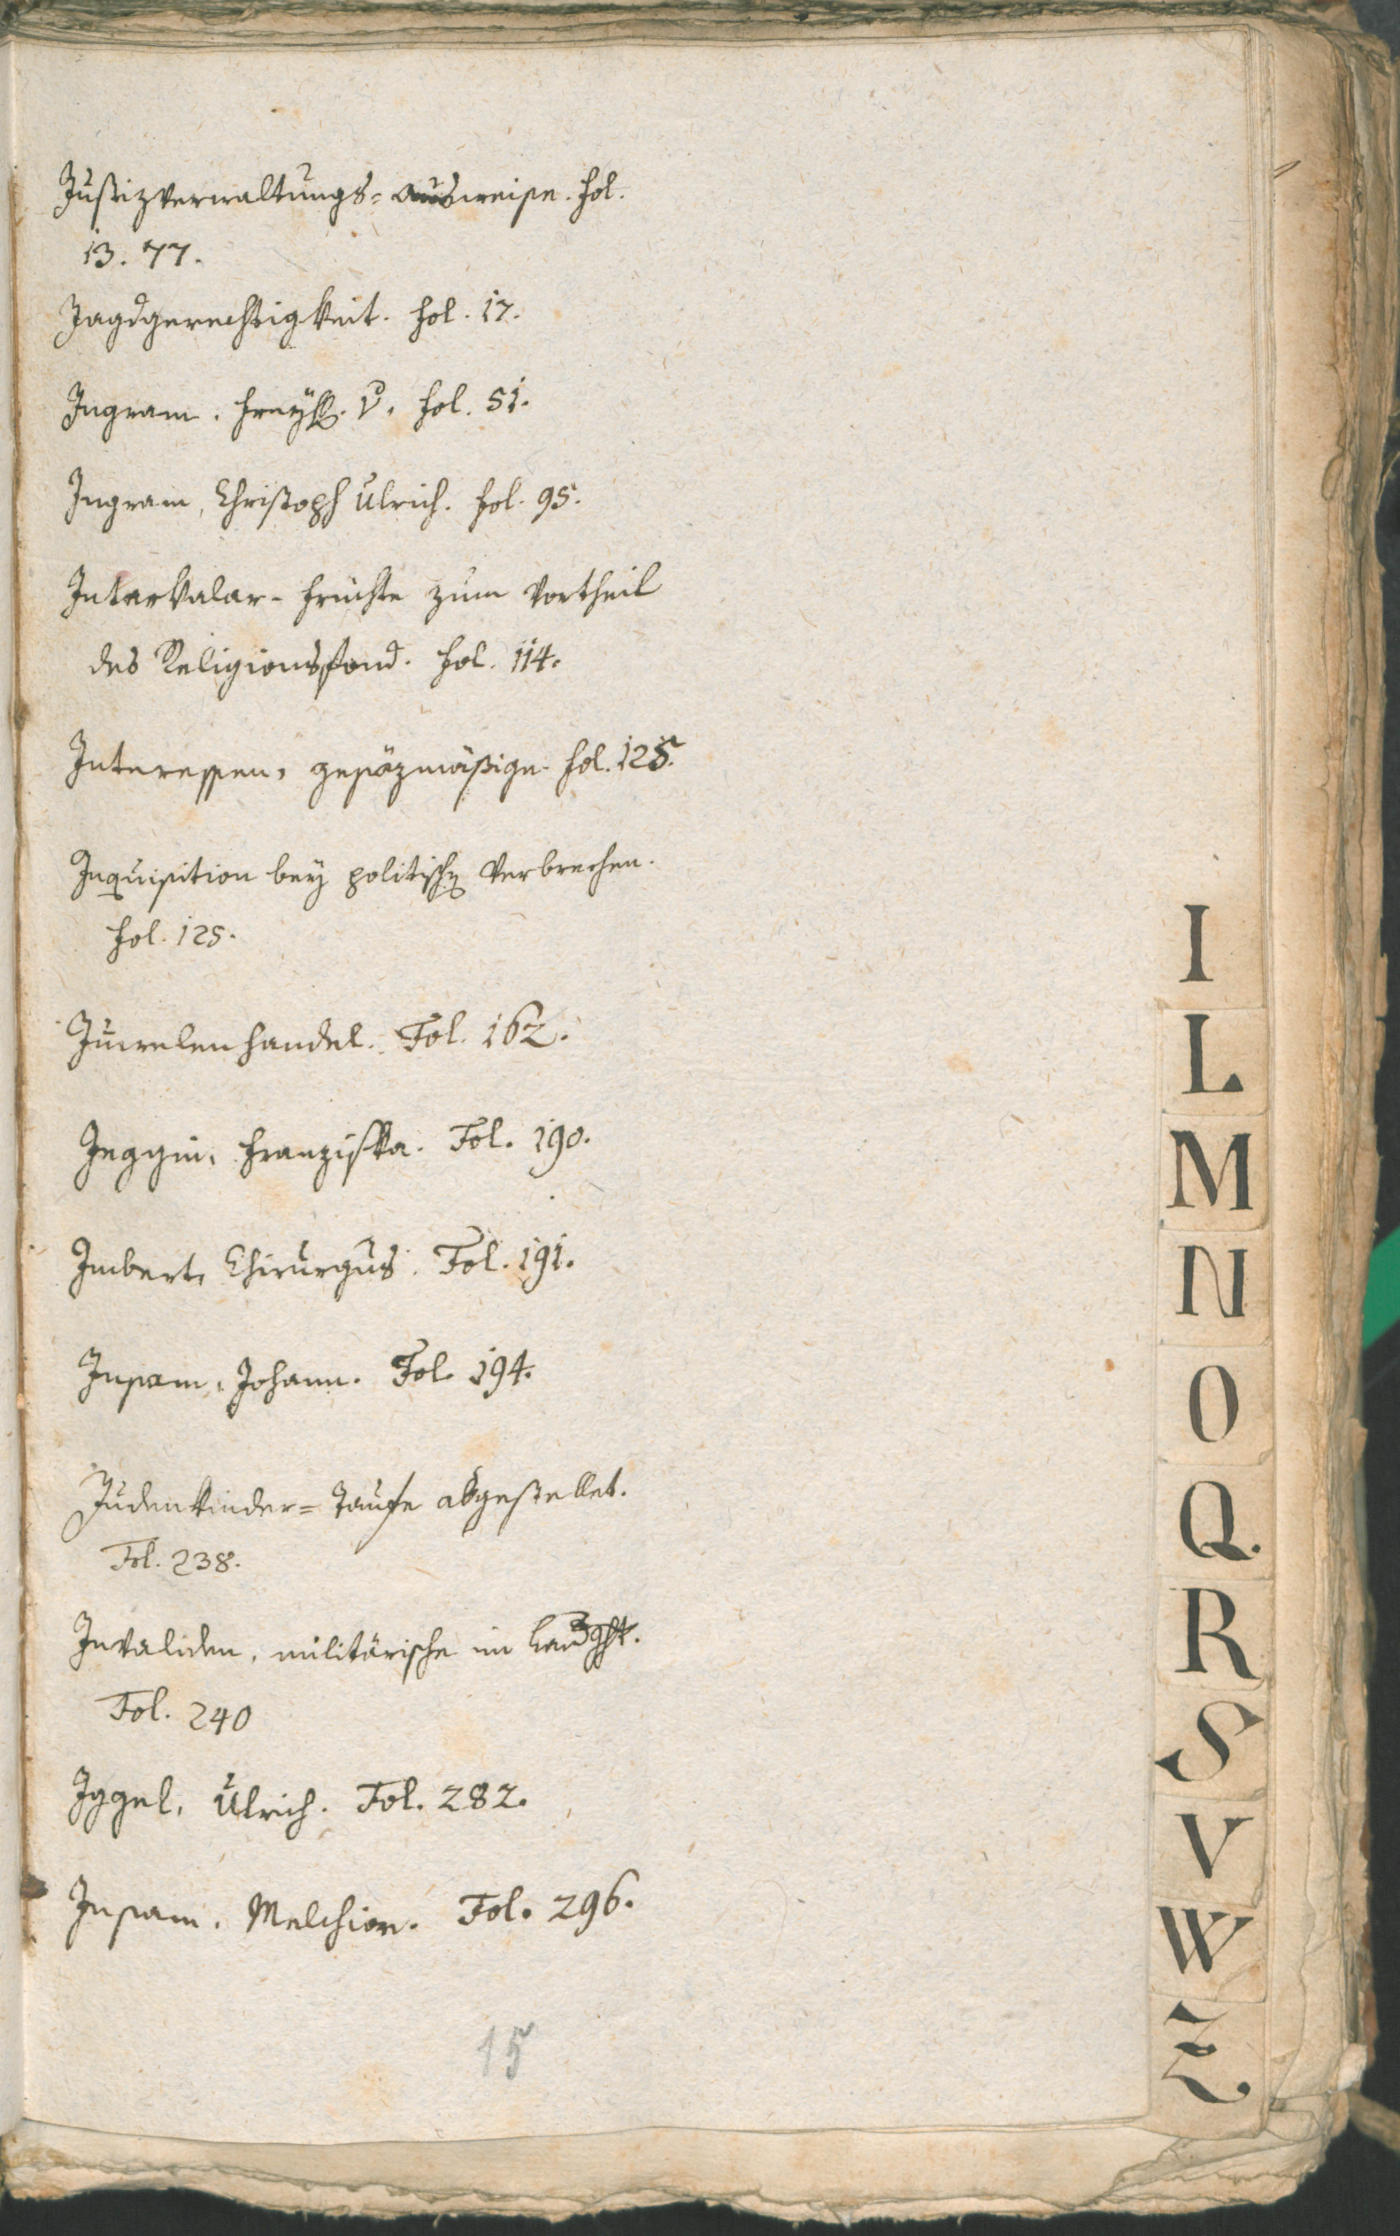 Justizverwaltungs=ausweise. fol.
13. 77.
Jagdgerechtigkeit. fol. 17.
Ingram. Freyh. v. fol. 51.
Ingram, Christoph Ulrich. fol. 95.
Interkalar-früchte zum Vortheil
des Religionsfond. fol. 114.
Interessen, gesäzmäßige. fol. 125.
Inquisition bey politischen Verbrechen.
fol. 125.
Juwelenhandel. Fol. 162.
Jeggin, Franziska. Fol. 190.
Imbert, Chirurgus. Fol. 191.
Insam, Johann. Fol. 194.
Judenkinder=Taufe abgestellet.
Fol. 238.
Invaliden, militärische im
Fol. 240
Iggel, Ulrich. Fol. 282.
Insam, Melchior. Fol. 296.
15
I
L
M
N
O
Q.
R
S
V
W
Z